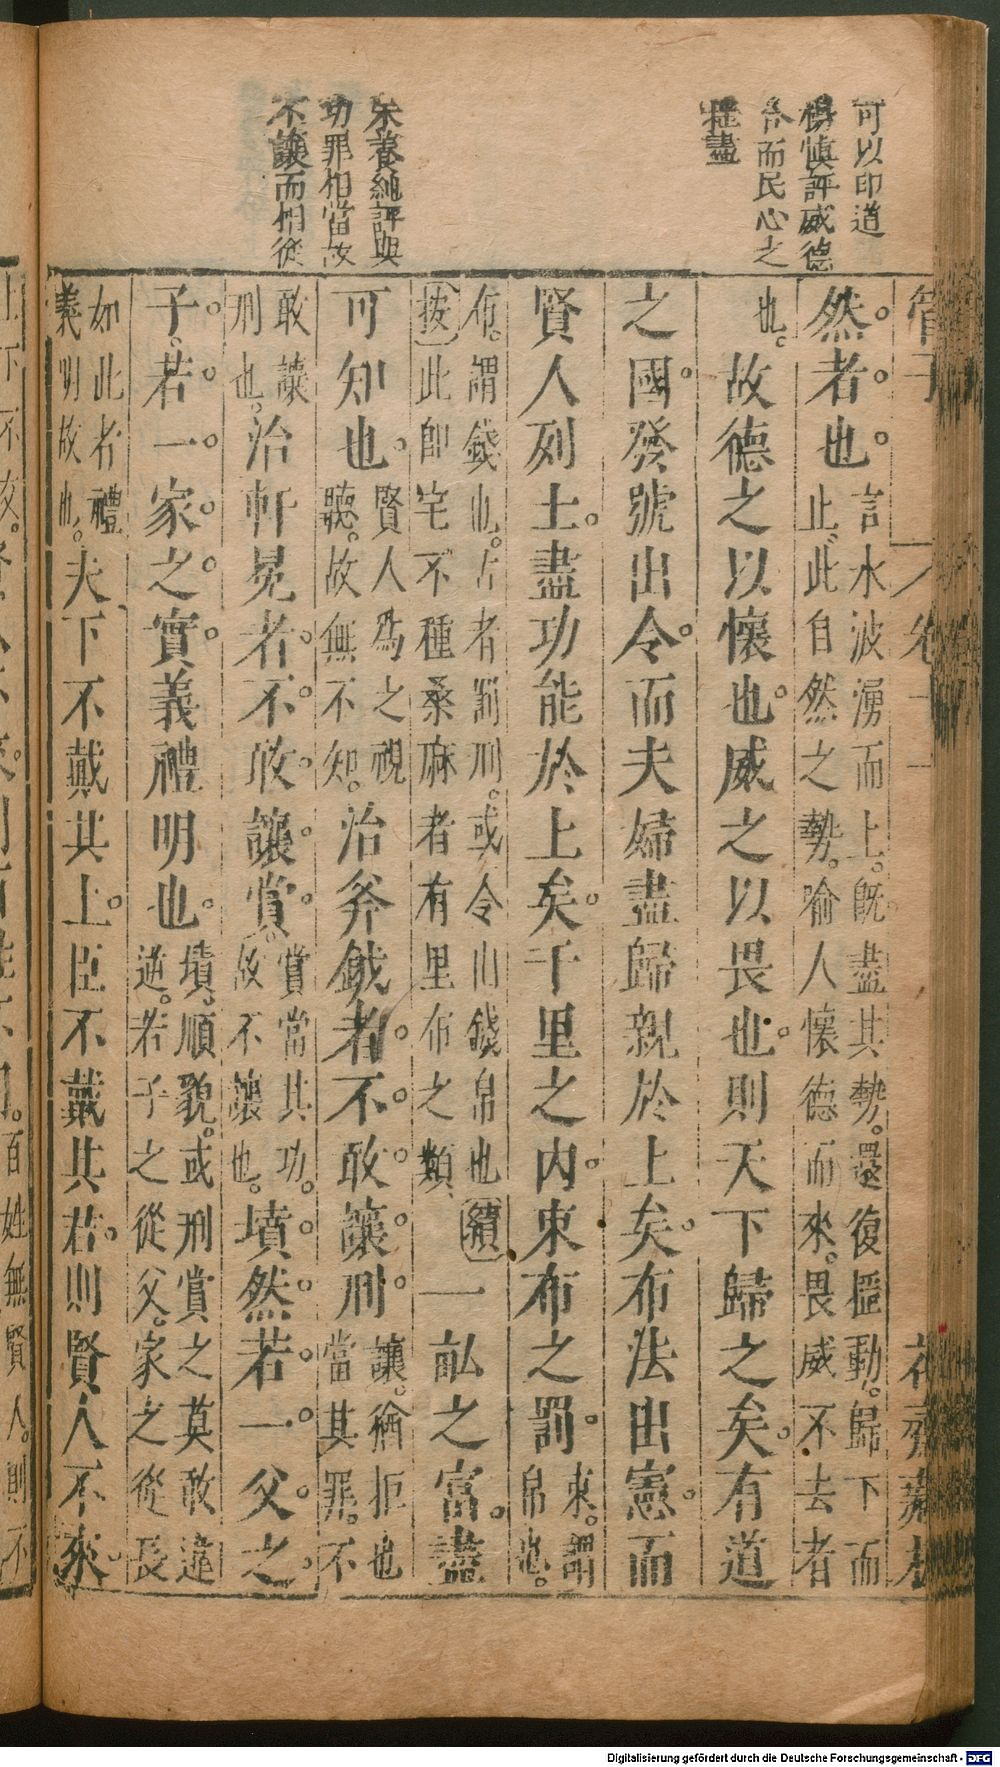 可以印道
楊慎評威德
合而民心之
權盡
朱養純評與
功罪相當故
不讓而相從
管子 卷十一 花齋藏板
然。者。也。言水波湧而上。旣盡其勢。還復搖動。歸下而
止。此自然之勢。喻人懷德而來。畏威不去者
也。故德之以懷也。威之以畏也。則天下歸之矣。有道
之國。發號出令。而夫婦盡歸親於上矣。布法出憲。而
賢人列士。盡功能於上矣。千里之內。束布之罰。束。謂
帛也。
布。謂錢也。古者罰刑。或令出錢帛也 續
按 此卽宅不種桑麻者有里布之類 一畝之富。盡
可知也。賢人爲之視
聽。故無不知。治斧鉞者。不。敢。讓。刑。讓。猶拒也
當其罪。不
敢讓
刑也。治軒冕者。不。敢。讓。賞。賞當其功。
故不讓也。墳。然。若。一。父。之。
子。若。一。家。之。實。義禮明也。墳。順貌。或刑賞之莫敢違
逆。若子之從父。家之從長
如此者禮
義明故也。夫下不戴其上。臣不戴其君。則賢人不來。
百姓無賢人。則不